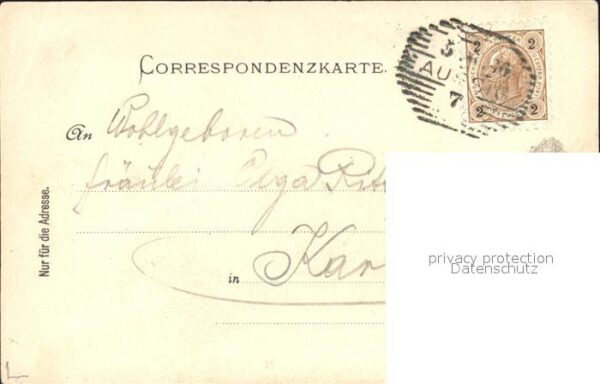 CORRESPONDENZKARTE.
2 2
2 2
AU
7
An Wohlgeboren
Fräulei Olga
in Kar
Nur für die Adresse.
privacy protection
Datenschutz